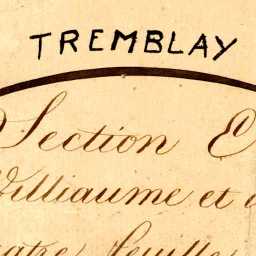 TREMBLAY
Section E
Williaume et
feuille